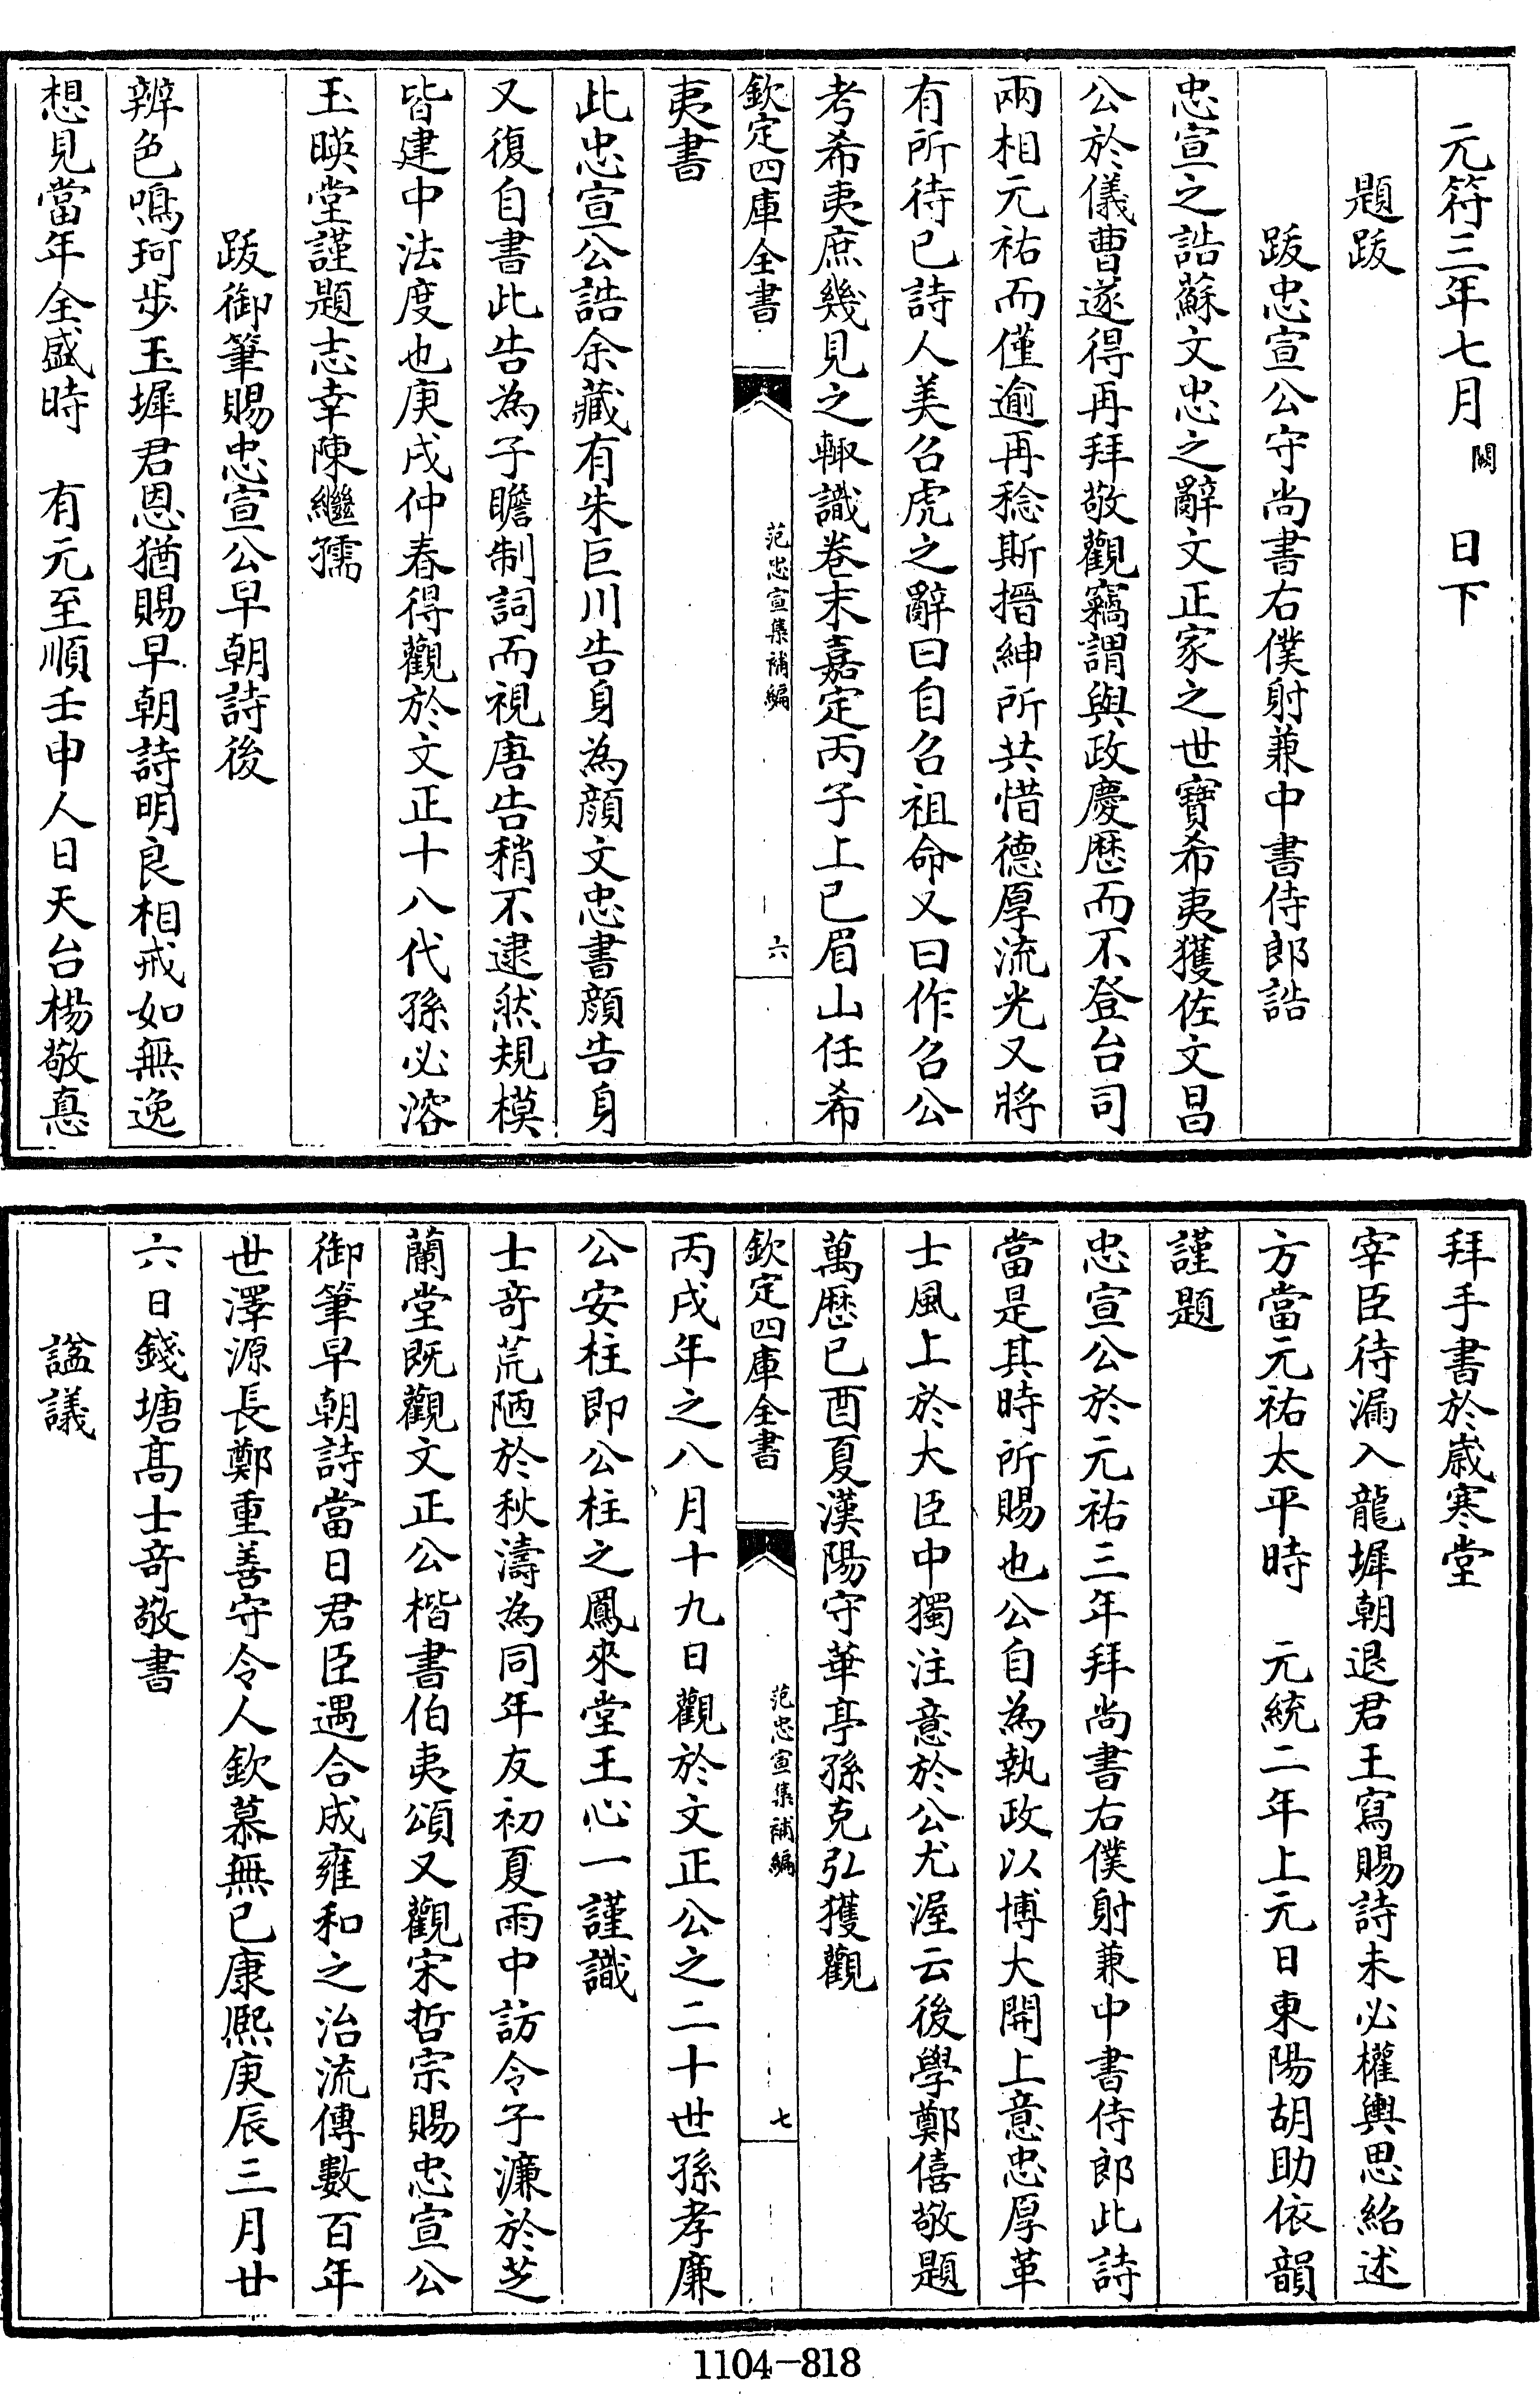 元符三年七月闕 日下
題跋
跋忠宣公守尚書右僕射兼中書侍郎誥
忠宣之誥蘇文忠之辭文正家之世寶希夷獲佐文昌
公於儀曹遂得再拜敬觀竊謂與政慶厯而不登台司
兩相元祐而僅逾再稔斯搢紳所共惜德厚流光又將
有所待已詩人美召虎之辭曰自召祖命又曰作召公
考希夷庶幾見之輙識卷末嘉定丙子上巳眉山任希
欽定四庫全書
范忠宣集補編
六
夷書
此忠宣公誥余藏有朱巨川告身為顔文忠書顔告身
又復自書此告為子瞻制詞而視唐告稍不逮然規模
皆建中法度也庚戌仲春得觀於文正十八代孫必溶
玉暎堂謹題志幸陳繼孺
跋御筆賜忠宣公早朝詩後
辨色鳴珂步玉墀君恩猶賜早朝詩明良相戒如無逸
想見當年全盛時 有元至順壬申人日天台楊敬悳
拜手書於歲寒堂
宰臣待漏入龍墀朝退君王寫賜詩未必權輿思紹述
方當元祐太平時 元統二年上元日東陽胡助依韻
謹題
忠宣公於元祐三年拜尚書右僕射兼中書侍郎此詩
當是其時所賜也公自為執政以博大開上意忠厚革
士風上於大臣中獨注意於公尤渥云後學鄭僖敬題
萬厯己酉夏漢陽守華亭孫克弘獲觀
欽定四庫全書
范忠宣集補編
七
丙戌年之八月十九日觀於文正公之二十世孫孝廉
公安柱即公柱之鳳來堂王心一謹識
士竒荒陋於秋濤為同年友初夏雨中訪令子濂於芝
蘭堂既觀文正公楷書伯夷頌又觀宋哲宗賜忠宣公
御筆早朝詩當日君臣遇合成雍和之治流傳數百年
世澤源長鄭重善守令人欽慕無已康熙庚辰三月廿
六日錢塘髙士竒敬書
諡議
1104-818